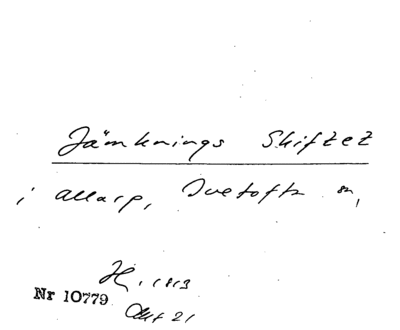 Jämknings Skiftet
i allarp, Tvetofta sn,
H, 1813
Nr 10779
Akt 21